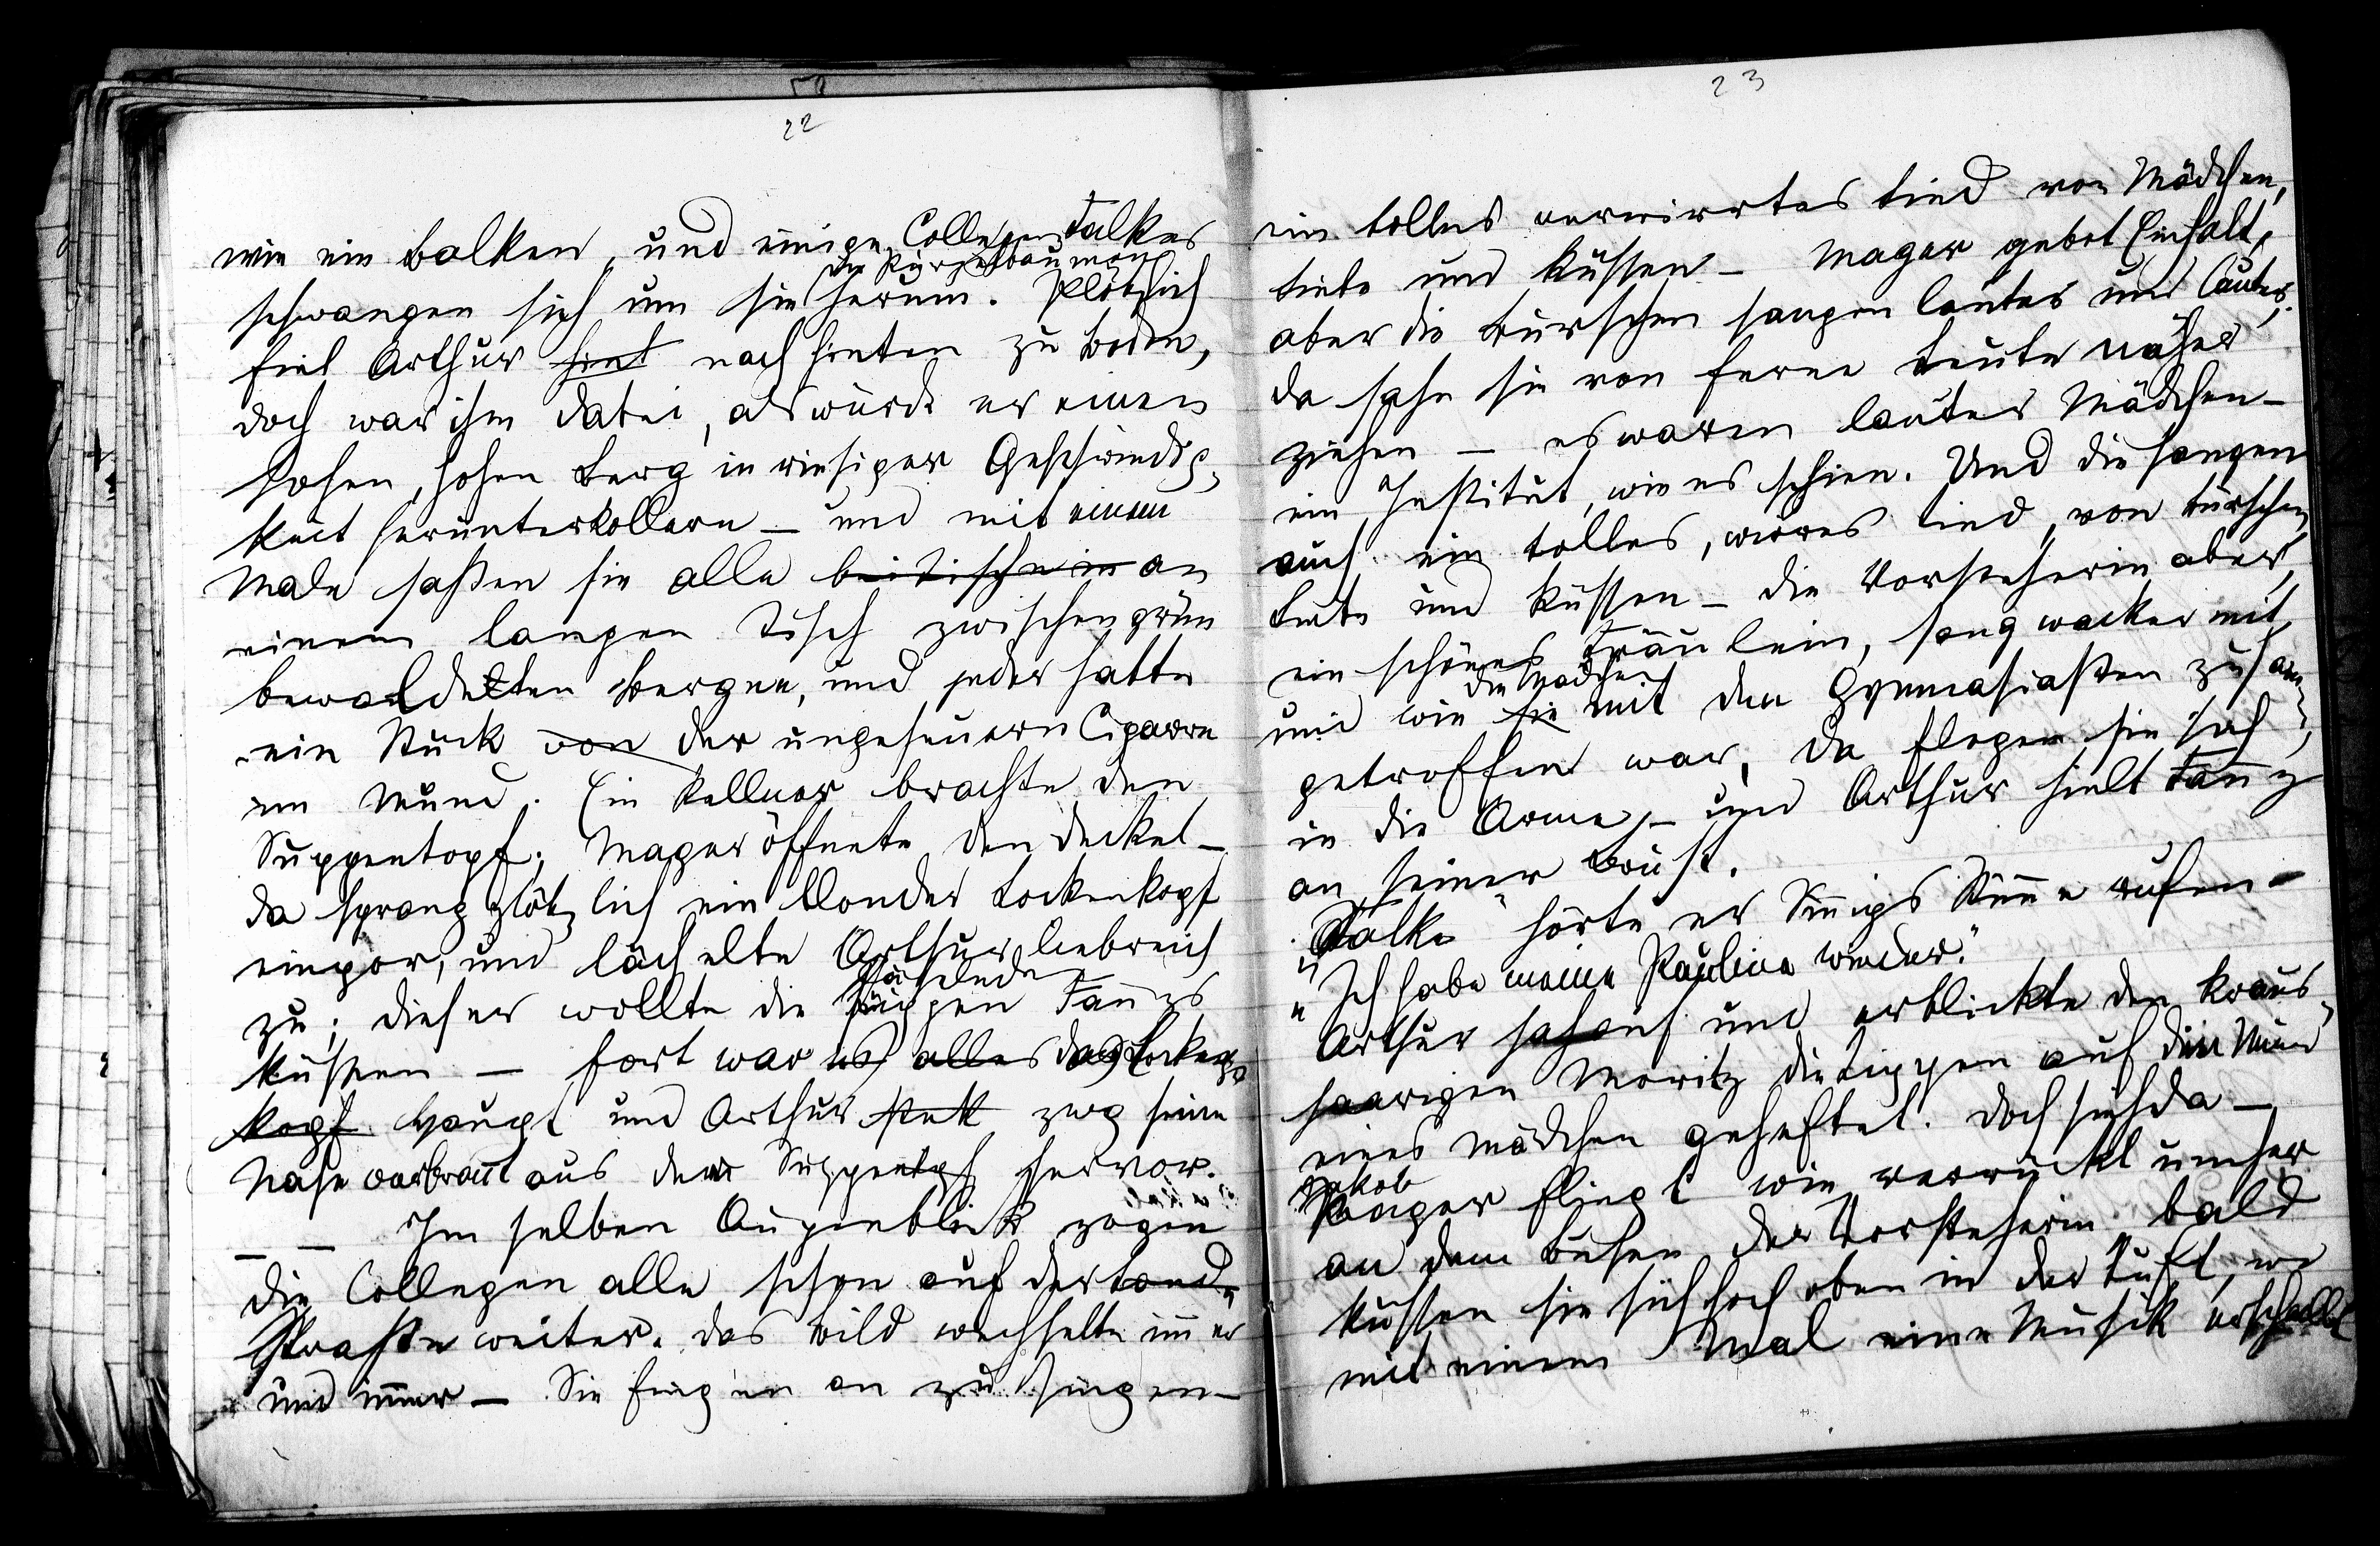 22
wie ein Balken, und einige Collegen Falkes
die Kürzestbaumany
schwangen sich um sie herum. Plötzlich
fiel Arthur hint nach hinten zu Boden,
doch war ihm dabei, als würde er einen
hohen, hohen Berg in riesiger Geschwindig-
keit herunterkollern – und mit einem
Male saßen sie alle bei Tische in an
einem langen Tisch zwischen grün
bewaldetten Bergen, und jeder hatte
ein Stück von der ungeheuern Cigarre
im Mund. Ein Kellner brachte den
Suppentopf; Mager öffnete den Deckel –
da sprang plötzlich ein blonder Lockenkopf
empor, und lächelte Arthur liebreich
lächelnden
zu; dieser wollte die Lippen Fannys
küssen – fort war es alles das Locken-
kopf Haupt und Arthur steck zog seine
Nase verbrannt aus dem Suppentopf hervor.
– – Im selben Augenblick zogen
die Collegen alle schon auf der Land-
straße weiter. Das Bild wechselte immer
und immer – Sie fingen an zu singen –
23
ein tolles verwirrtes Lied von Mädchen,
Liebe und Küssen – Mager gebot Einhalt,
aber die Burschen sangen lauter und lauter;
da sahn sie von ferne Leute näher
ziehen – es waren lauter Mädchen –
ein Institut, wie es schien. Und die sangen
auch ein tolles, wirres Lied, von Burschen,
Liebe und Küssen – die Vorsteherin aber,
ein schönes Fräulein, sang wacker mit,
die Mädchen
und wie sie mit den Gymnasiasten zusam-
getroffen war, da flogen sie sich
in die Arme, – und Arthur hielt Fanny
an seiner Brust.
„Falke“ hörte er Sinnigs Stimme rufen –
„Ich habe meine Pauline wieder.“
Arthur sah auf und erblickte den kraus-
haarigen Moritz die Lippen auf den Mund
eines Mädchen geheftet. Doch sieh da –
Jakob
Mager fliegt wie verrückt umher
an dem Busen der Vorsteherin bald
küssen sie sich hoch oben in der Luft, wo
mit einem Mal eine Musik erschallt